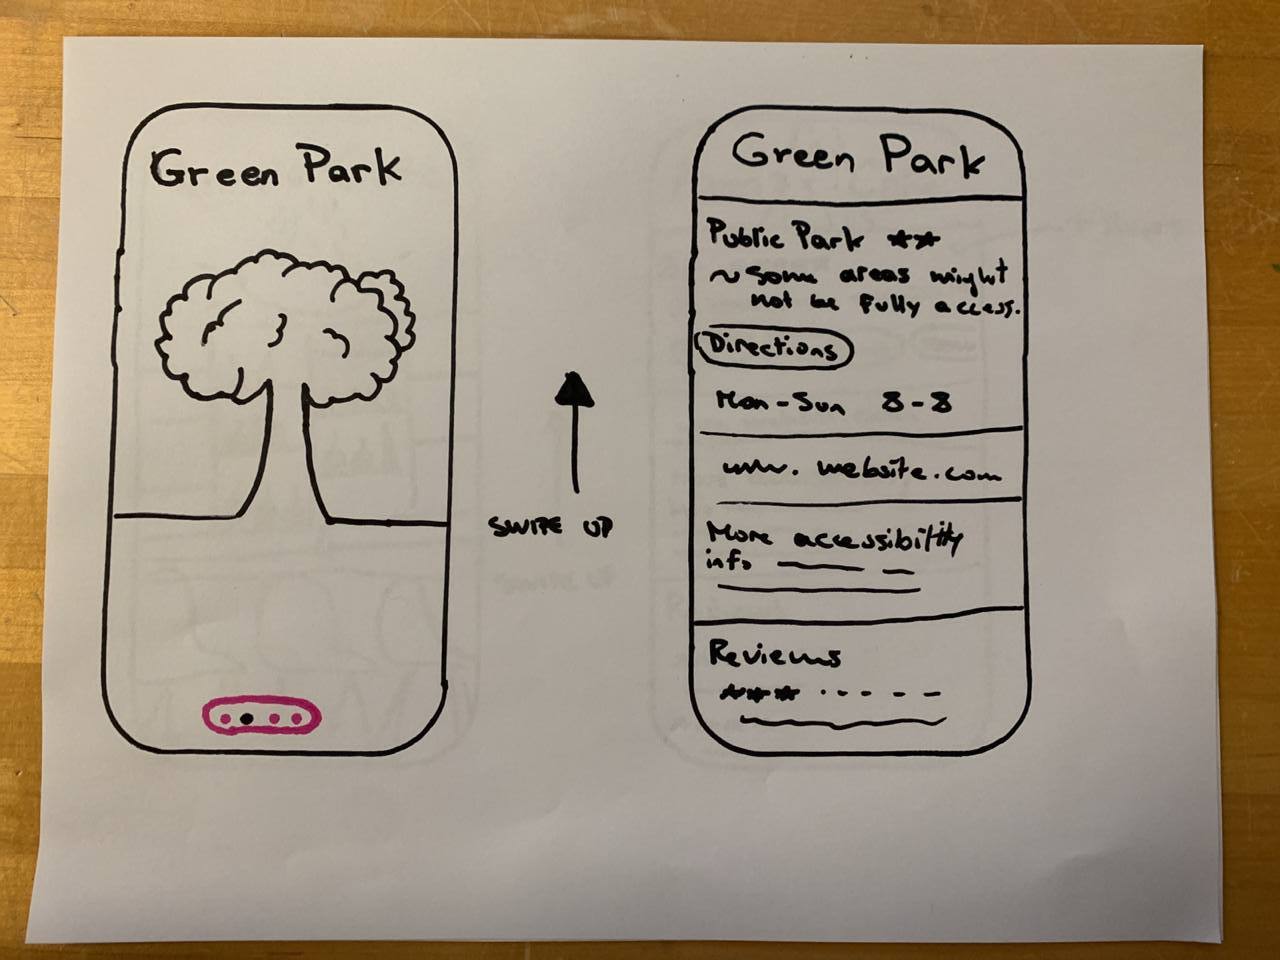 Green Park
SWIPE UP
Green Park
Public Park **
~ Some areas might
not be fully access.
Directions
Mon-Sun 8-8
www.website.com
More accessibility
info
Reviews
***